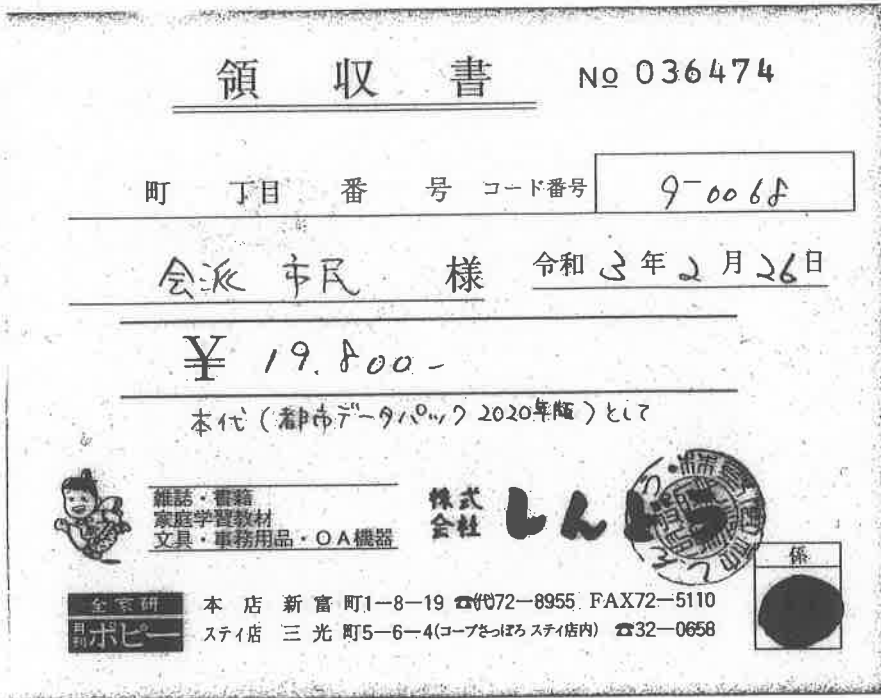 領収書 No 036474
町 丁目 番 号 コード番号 9-0068
会派 市民 様 令和3年2月26日
¥19.800-
本代（都市データパック2020年版）として
雑誌・書籍
家庭学習教材
文具・事務用品・OA機器
株式会社 しん
係
全家研
月刊ポピー
本店 新富町1-8-19 ☎(代)72-8955 FAX72-5110
ステイ店 三光町5-6-4(コープさっぽろ ステイ店内) ☎32-0658